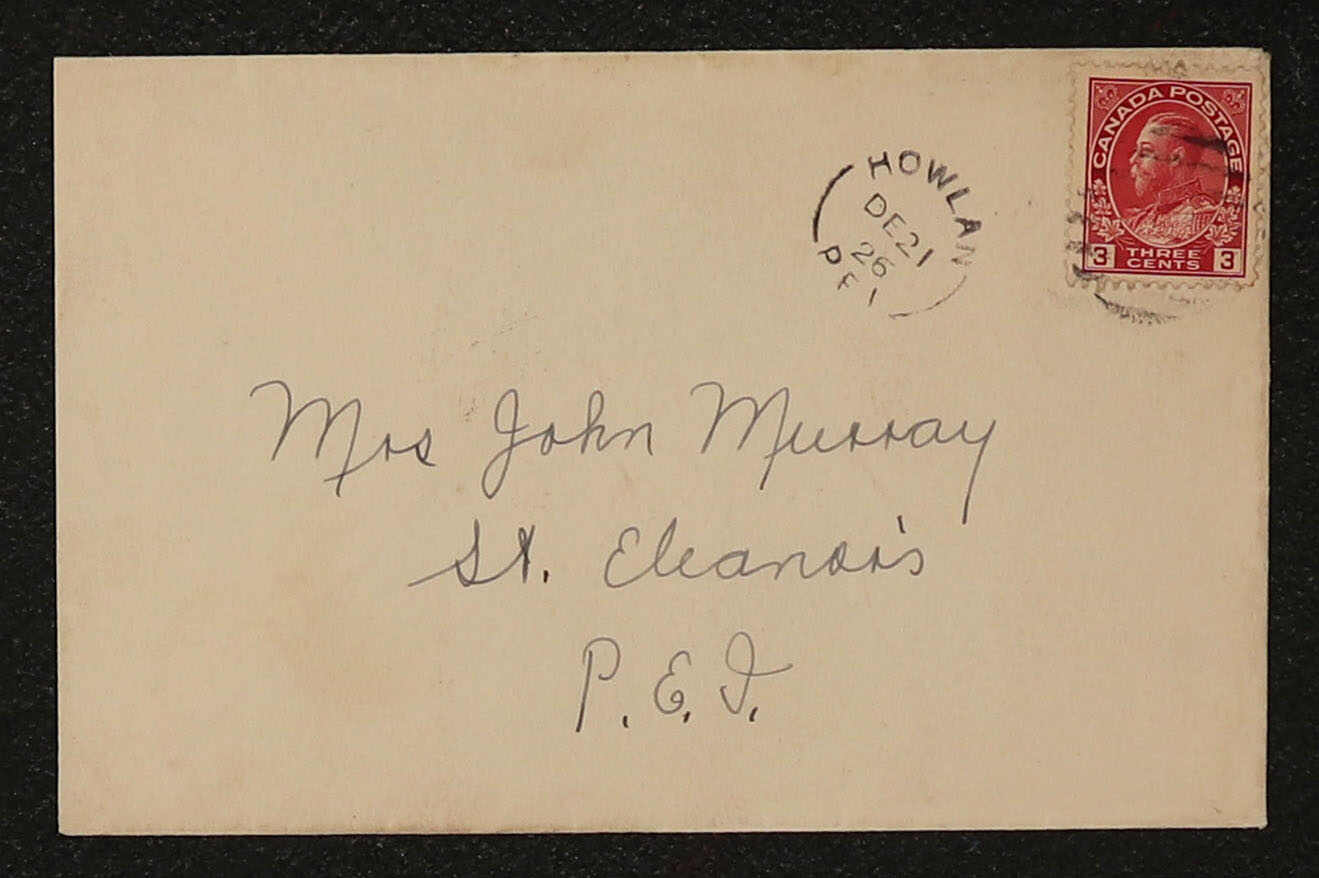 CANADA POSTAGE
3 THREE CENTS 3
HOWLAN
DE 21
26
P E I
Mrs John Murray
St. Eleanor's
P. E. I.